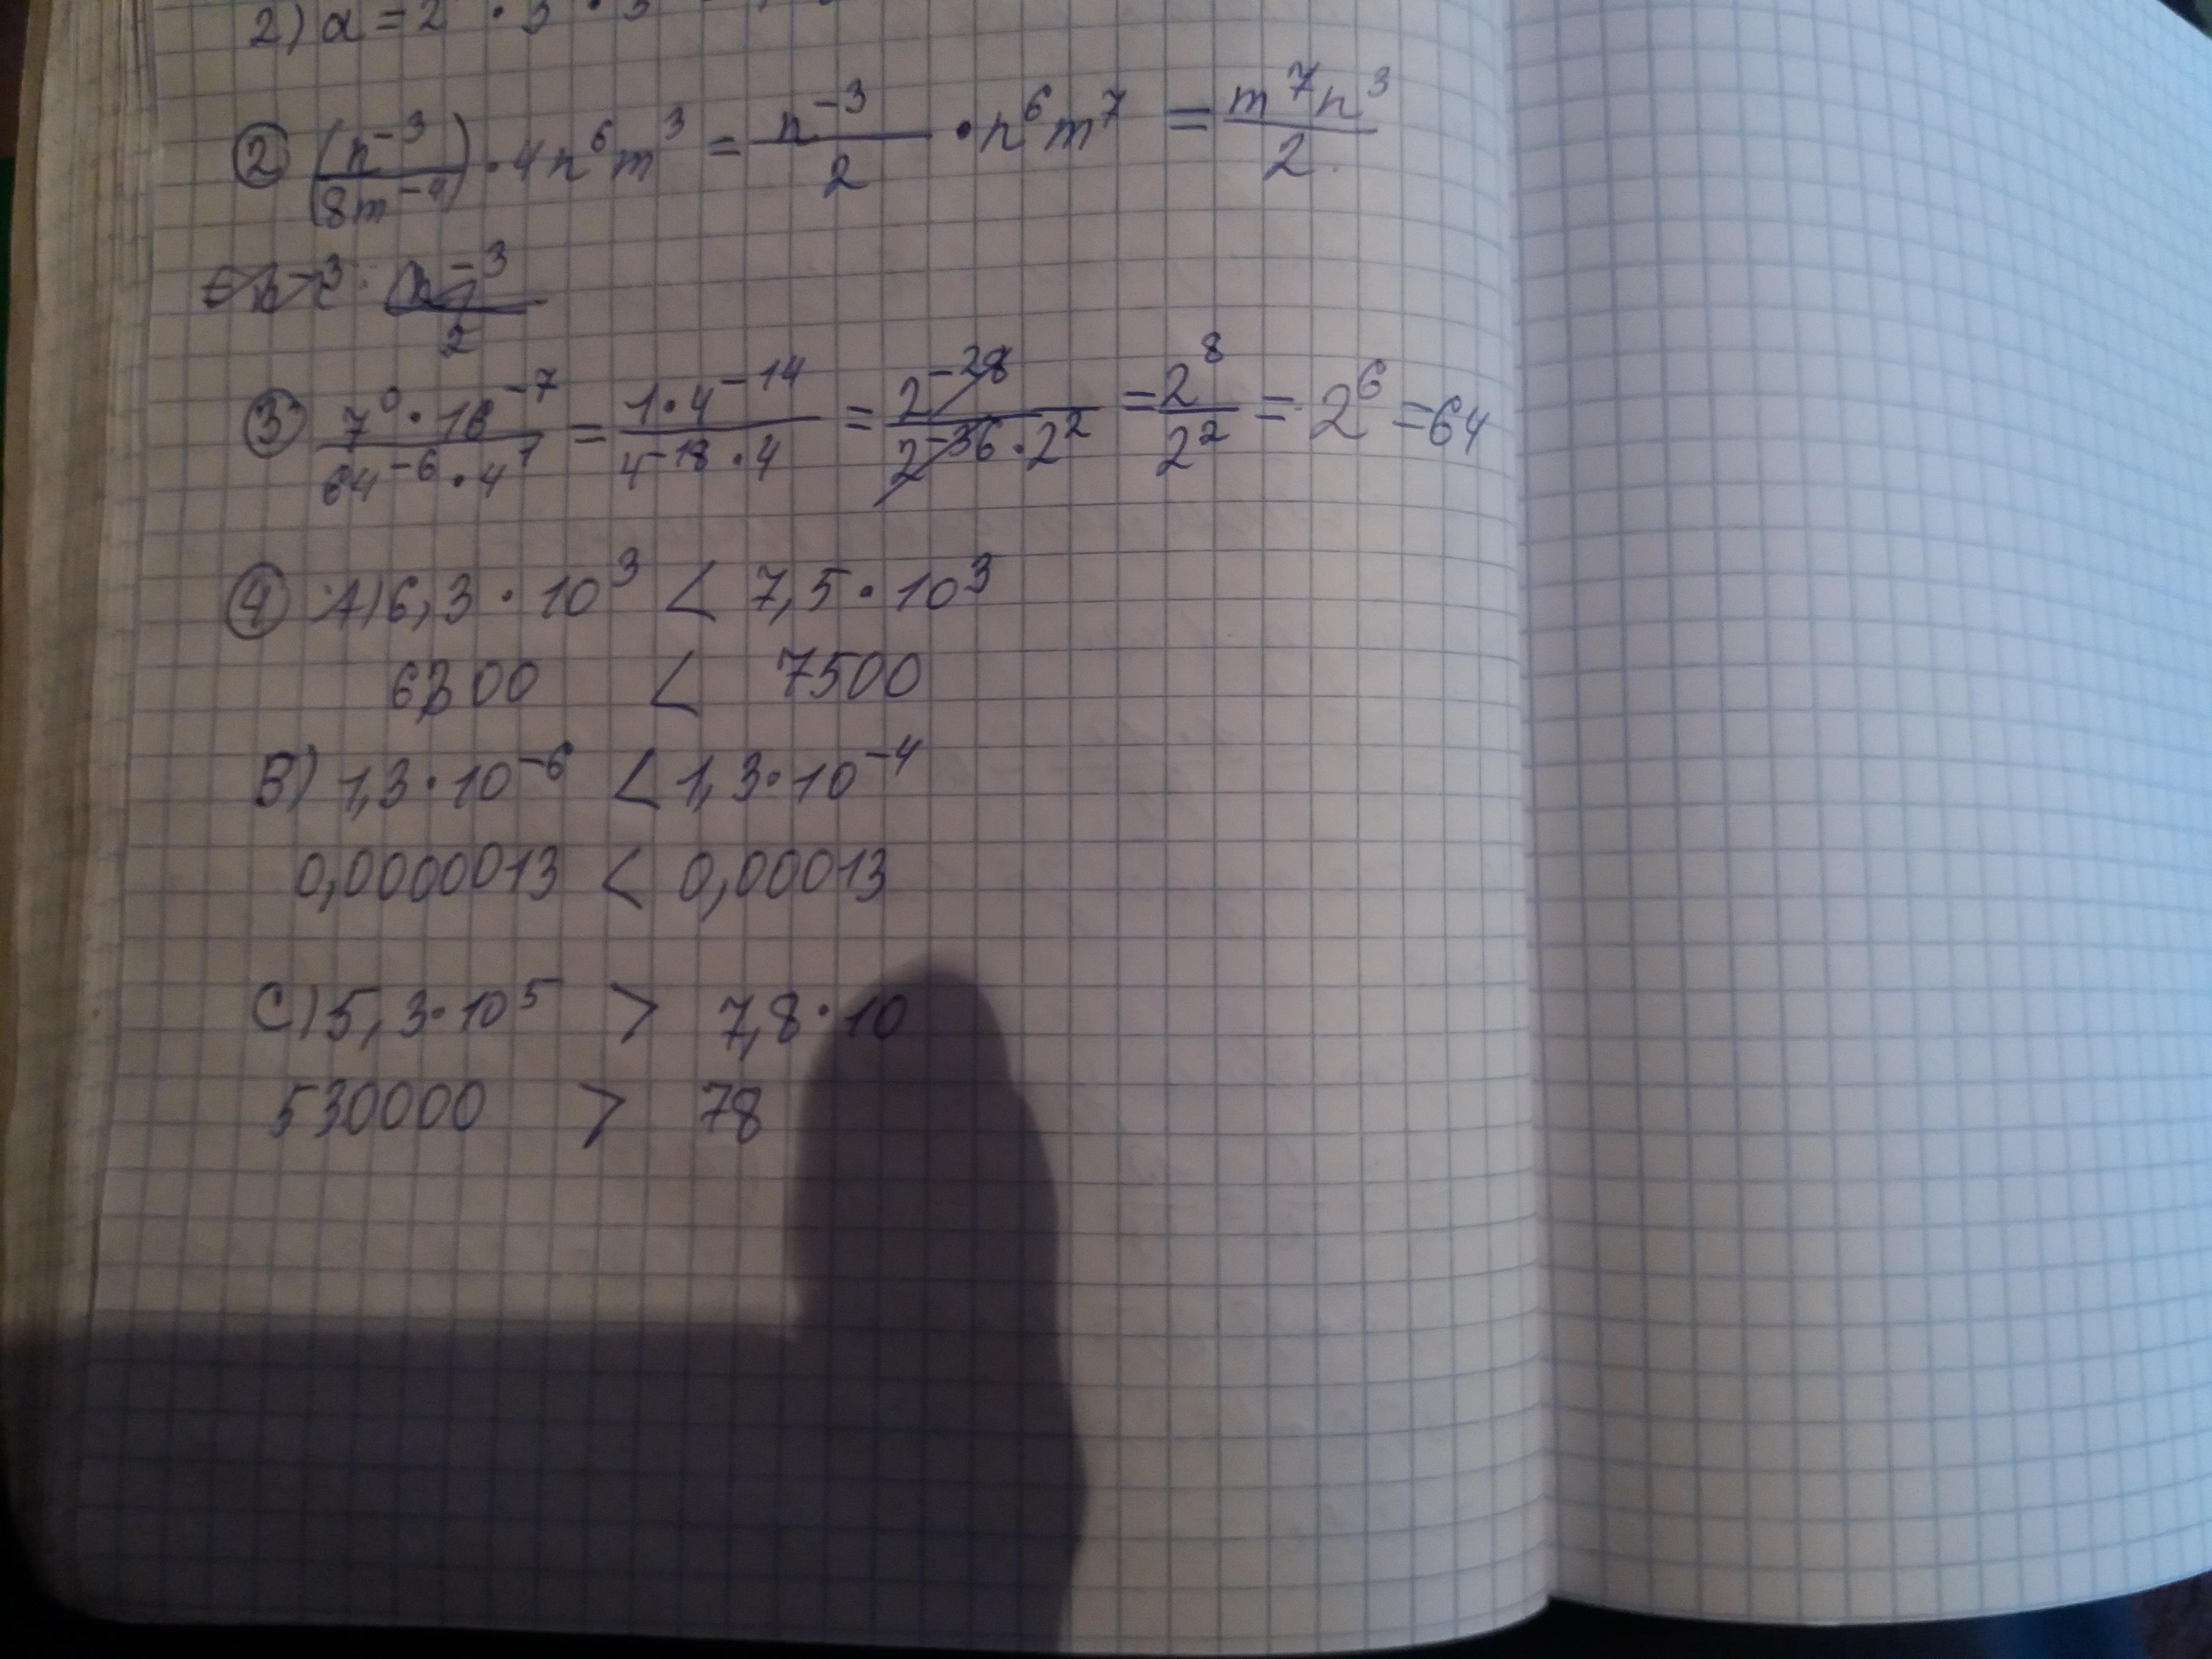 2) a = 2 · 3 · 3
② (n⁻³/8m⁻⁴) · 4n⁶m³ = n⁻³/2 · n⁶m⁷ = m⁷n³/2
n⁻³/2
③ 7⁰ · 16⁻⁷/64⁻⁶ · 4¹ = 1 · 4⁻¹⁴/4⁻¹⁸ · 4 = 2⁻²⁸/2⁻³⁶ · 2² = 2⁸/2² = 2⁶ = 64
④ A) 6,3 · 10³ < 7,5 · 10³
6300 < 7500
B) 1,3 · 10⁻⁶ < 1,3 · 10⁻⁴
0,0000013 < 0,00013
C) 5,3 · 10⁵ > 7,8 · 10
530000 > 78